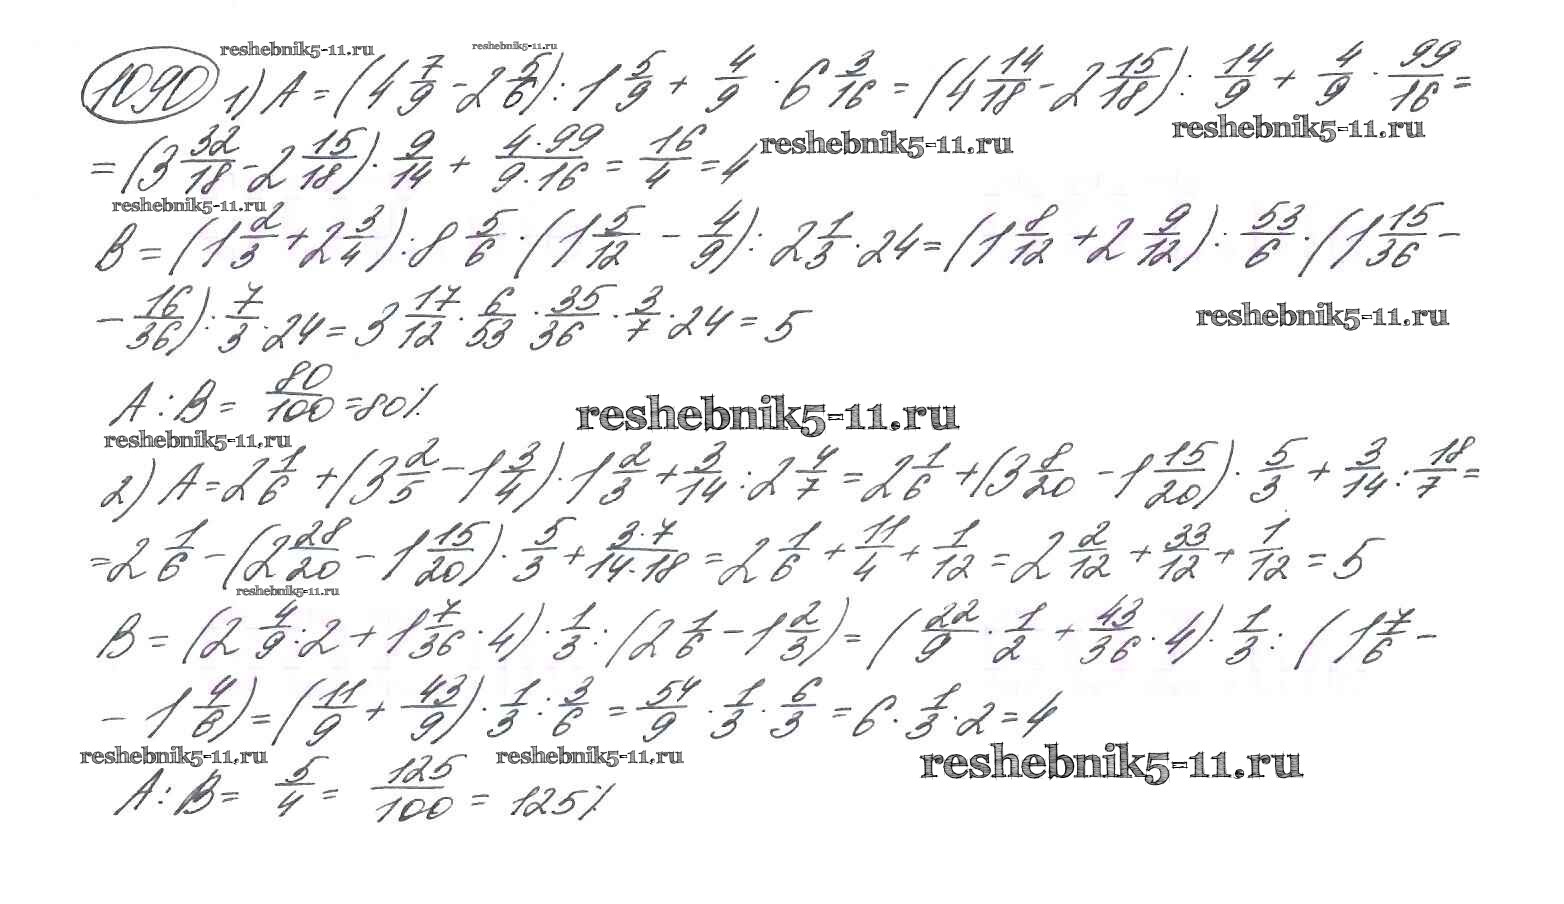 reshebnik5-11.ru reshebnik5-11.ru
1090 1) A = (4 7/9 - 2 5/6) : 1 5/9 + 4/9 · 6 3/16 = (4 14/18 - 2 15/18) : 14/9 + 4/9 · 99/16 =
= (3 32/18 - 2 15/18) · 9/14 + 4·99/9·16 = 16/4 = 4 reshebnik5-11.ru reshebnik5-11.ru
reshebnik5-11.ru
B = (1 2/3 + 2 3/4) : 8 5/6 · (1 5/12 - 4/9) : 2 1/3 · 24 = (1 8/12 + 2 9/12) : 53/6 · (1 15/36 -
- 16/36) : 7/3 · 24 = 3 17/12 · 6/53 · 35/36 · 3/7 · 24 = 5 reshebnik5-11.ru
A : B = 80/100 = 80% reshebnik5-11.ru
reshebnik5-11.ru
2) A = 2 1/6 + (3 2/5 - 1 3/4) · 1 2/3 + 3/14 : 2 4/7 = 2 1/6 + (3 8/20 - 1 15/20) · 5/3 + 3/14 : 18/7 =
= 2 1/6 - (2 28/20 - 1 15/20) · 5/3 + 3·7/14·18 = 2 1/6 + 11/4 + 1/12 = 2 2/12 + 33/12 + 1/12 = 5
reshebnik5-11.ru
B = (2 4/9 : 2 + 1 7/36 · 4) · 1/3 : (2 1/6 - 1 2/3) = (22/9 · 1/2 + 43/36 · 4) · 1/3 : (1 7/6 -
- 1 4/6) = (11/9 + 43/9) · 1/3 : 3/6 = 54/9 · 1/3 · 6/3 = 6 · 1/3 · 2 = 4
reshebnik5-11.ru reshebnik5-11.ru reshebnik5-11.ru
A : B = 5/4 = 125/100 = 125%